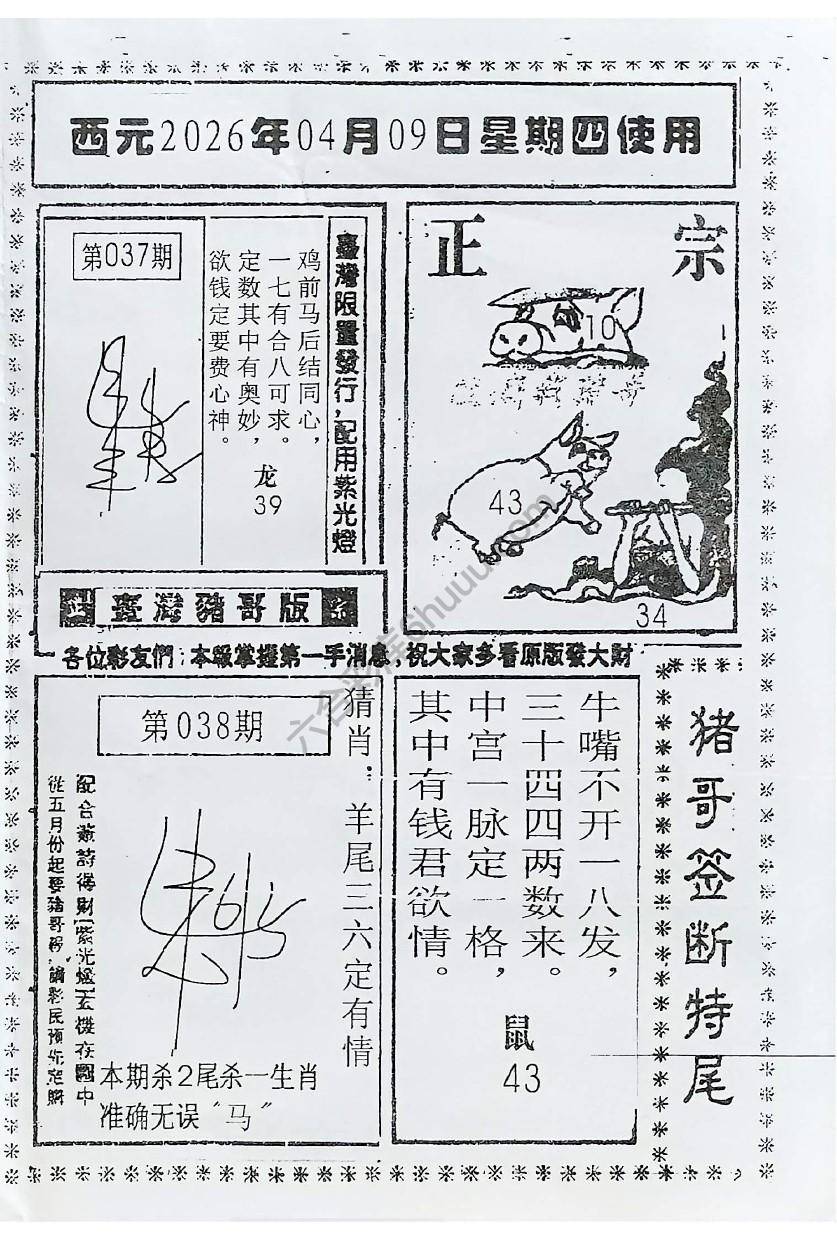 西元2026年04月09日星期四使用
第037期
臺灣限量發行，配用紫光燈
鸡前马后结同心，
一七有合八可求。
定数其中有奥妙，
欲钱定要费心神。
龙
39
正宗
10
43
34
臺灣豬哥版
各位彩友們：本級掌握第一手消息，祝大家多看原版發大財
第038期
猜肖：羊尾三六定有情
從五月份起要豬哥
本期杀2尾杀一生肖
准确无误“马”
牛嘴不开一八发，
三十四四两数来。
中宫一脉定一格，
其中有钱君欲情。
鼠
43
猪哥签断特尾
六合彩库6huuu.com